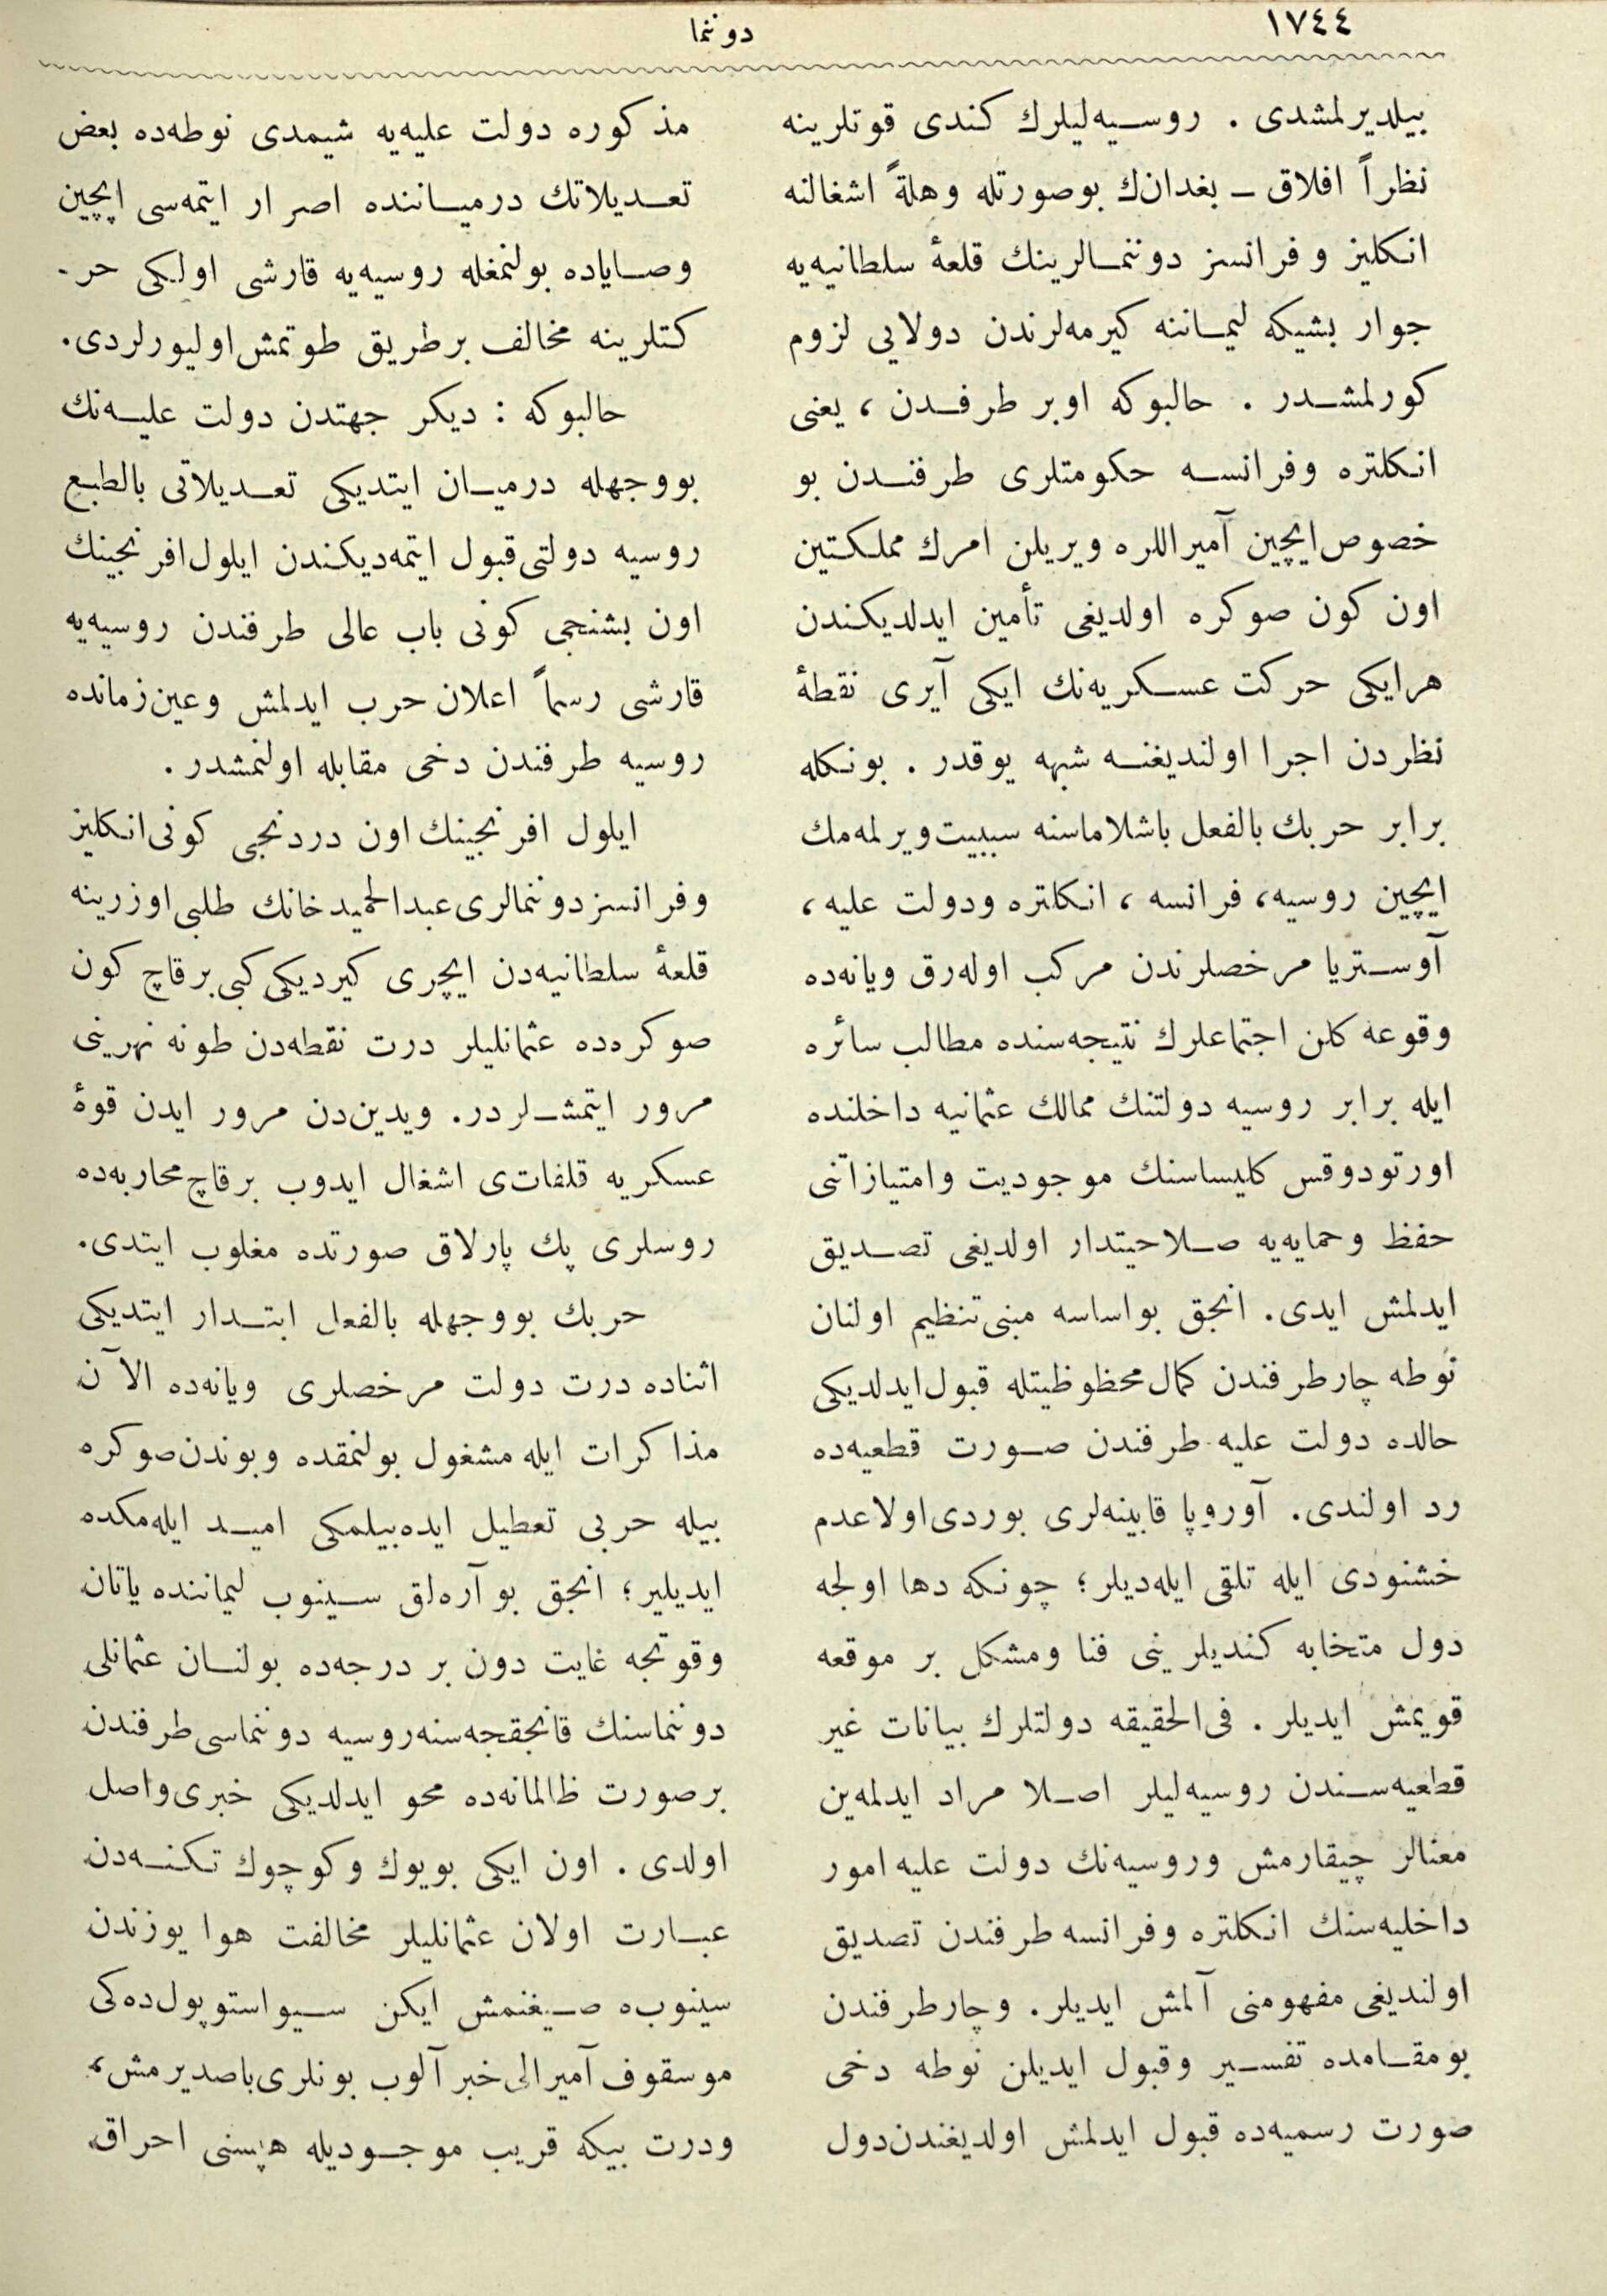 ١٧٤٤
دوننما
بيلديرلمشدى . روسيه‌ليلرك كندى قوتلرينه
نظراً افلاق ـ بغدان‌ك بوصورتله وهلةً اشغالنه
انكليز و فرانسز دوننمالرينك قلعۀ سلطانيه‌يه
جوار بشيكه ليماننه كيرمه‌لرندن دولايى لزوم
كورلمشدر . حالبوكه اوبر طرفدن ، يعنى
انكلتره وفرانسه حكومتلرى طرفندن بو
خصوص ايچين آميراللره ويريلن امرك مملكتين
اون كون صوكره اولديغى تأمين ايدلديكندن
هرايكى حركت عسكريه‌نك ايكى آيرى نقطۀ
نظردن اجرا اولنديغنه شبهه يوقدر . بونكله
برابر حربك بالفعل باشلاماسنه سببيت‌ويرلمه‌مك
ايچين روسيه، فرانسه ، انكلتره ودولت عليه ،
آوستريا مرخصلرندن مركب اوله‌رق ويانه‌ده
وقوعه كلن اجتماعلرك نتيجه‌سنده مطالب سائره
ايله برابر روسيه دولتنك ممالك عثمانيه داخلنده
اورتودوقس كليساسنك موجوديت وامتيازاتنى
حفظ وحمايه‌يه صلاحيتدار اولديغى تصديق
ايدلمش ايدى. انجق بواساسه مبنى تنظيم اولنان
نوطه چارطرفندن كمال محظوظيتله قبول ايدلديكى
حالده دولت عليه طرفندن صورت قطعيه‌ده
رد اولندى. آوروپا قابينه‌لرى بوردى اولا عدم
خشنودى ايله تلقى ايله‌ديلر؛ چونكه دها اولجه
دول متخابه كنديلرينى فنا ومشكل بر موقعه
قويمش ايديلر . فى‌الحقيقه دولتلرك بيانات غير
قطعيه‌سندن روسيه‌ليلر اصلا مراد ايدلمه‌ين
معنالر چيقارمش وروسيه‌نك دولت عليه امور
داخليه‌سنك انكلتره وفرانسه طرفندن تصديق
اولنديغى مفهومنى آلمش ايديلر. وچارطرفندن
بومقامده تفسير وقبول ايديلن نوطه دخى
صورت رسميه‌ده قبول ايدلمش اولديغندن‌دول
مذكوره دولت عليه‌يه شيمدى نوطه‌ده بعض
تعديلاتك درمياننده اصرار ايتمه‌سى ايچين
وصاياده بولنمغله روسيه‌يه قارشى اولكى حر-
كتلرينه مخالف برطريق طوتمش اوليورلردى.
حالبوكه : ديكر جهتدن دولت عليه‌نك
بووجهله درميان ايتديكى تعديلاتى بالطبع
روسيه دولتى قبول ايتمه‌ديكندن ايلول افرنجينك
اون بشنجى كونى باب عالى طرفندن روسيه‌يه
قارشى رسماً اعلان حرب ايدلمش وعين‌زمانده
روسيه طرفندن دخى مقابله اولنمشدر .
ايلول افرنجينك اون دردنجى كونى انكليز
وفرانسز دوننمالرى عبدالحميدخانك طلبى اوزرينه
قلعۀ سلطانيه‌دن ايچرى كيرديكى كبى برقاچ كون
صوكره‌ده عثمانليلر درت نقطه‌دن طونه نهرينى
مرور ايتمشلردر. ويدين‌دن مرور ايدن قوۀ
عسكريه قلفات‌ى اشغال ايدوب برقاچ محاربه‌ده
روسلرى پك پارلاق صورتده مغلوب ايتدى.
حربك بووجهله بالفعل ابتدار ايتديكى
اثناده درت دولت مرخصلرى ويانه‌ده الآن
مذاكرات ايله مشغول بولنمقده وبوندن‌صوكره
بيله حربى تعطيل ايده‌بيلمكى اميد ايله‌مكده
ايديلير؛ انجق بو آره‌لق سينوب ليماننده ياتان
وقوتجه غايت دون بر درجه‌ده بولنان عثمانلى
دوننماسنك قانجقجه‌سنه روسيه دوننماسى طرفندن
برصورت ظالمانه‌ده محو ايدلديكى خبرى واصل
اولدى . اون ايكى بويوك وكوچوك تكنه‌دن
عبارت اولان عثمانليلر مخالفت هوا يوزندن
سينوب‌ه صيغنمش ايكن سيواستوپول‌ده‌كى
موسقوف آميرالى خبر آلوب بونلرى باصديرمش،
ودرت بيكه قريب موجوديله هپسنى احراق